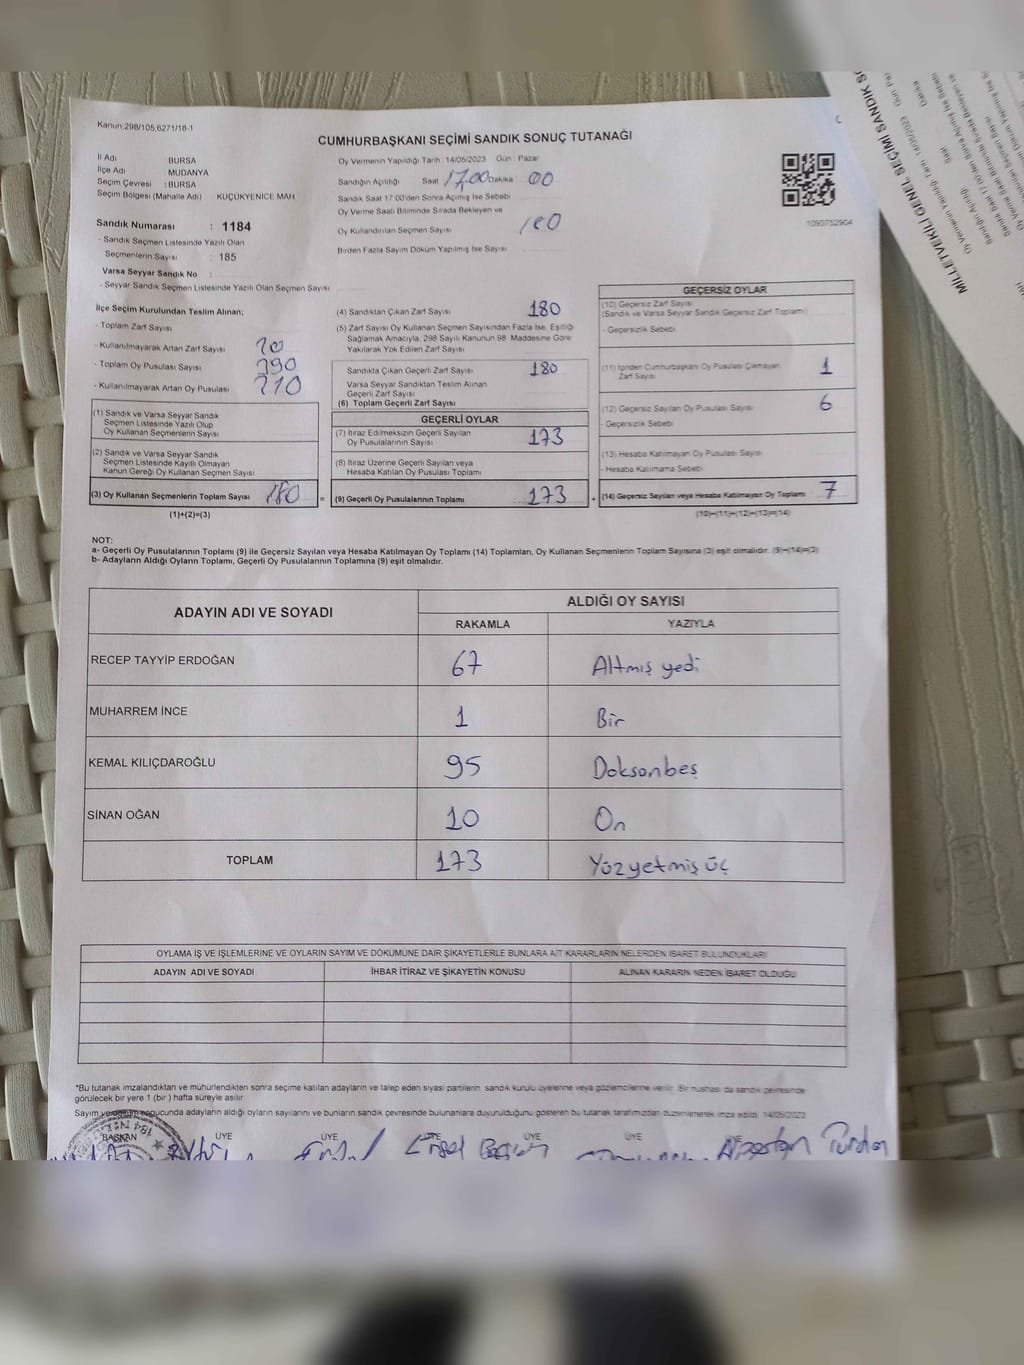 Kanun:298/105,6271/18-1
CUMHURBAŞKANI SEÇİMİ SANDIK SONUÇ TUTANAĞI
İl Adı BURSA
İlçe Adı MUDANYA
Seçim Çevresi : BURSA
Seçim Bölgesi (Mahalle Adı) KUÇÜKYENICE MAH
Oy Vermenin Yapıldığı Tarih 14/05/2023 Gün : Pazar
Sandığın Açıldığı Saat 17,00 Dakika 00
Sandık Saat 17:00'den Sonra Açımış İse Sebebi
Oy Verme Saati Bitiminde Sırada Bekleyen ve
Oy Kullandırılan Seçmen Sayısı 180
Birden Fazla Sayım Döküm Yapılmış İse Sayısı
1093752904
Sandık Numarası : 1184
- Sandık Seçmen Listesinde Yazılı Olan
Seçmenlerin Sayısı : 185
Varsa Seyyar Sandık No :
- Seyyar Sandık Seçmen Listesinde Yazılı Olan Seçmen Sayısı :
İlçe Seçim Kurulundan Teslim Alınan;
- Toplam Zarf Sayısı
- Kullanılmayarak Artan Zarf Sayısı
- Toplam Oy Pusulası Sayısı
- Kullanılmayarak Artan Oy Pusulası
(1) Sandık ve Varsa Seyyar Sandık
Seçmen Listesinde Yazılı Olup
Oy Kullanan Seçmenlerin Sayısı
(2) Sandık ve Varsa Seyyar Sandık
Seçmen Listesinde Kayıtlı Olmayan
Kanun Gereği Oy Kullanan Seçmen Sayısı
(3) Oy Kullanan Seçmenlerin Toplam Sayısı 180
(1)+(2)=(3)
(4) Sandıktan Çıkan Zarf Sayısı 180
(5) Zarf Sayısı Oy Kullanan Seçmen Sayısından Fazla İse, Eşitliği
Sağlamak Amacıyla, 298 Sayılı Kanunun 98. Maddesine Göre
Yakılarak Yok Edilen Zarf Sayısı
Sandıkta Çıkan Geçerli Zarf Sayısı 180
Varsa Seyyar Sandıktan Teslim Alınan
Geçerli Zarf Sayısı
(6) Toplam Geçerli Zarf Sayısı
GEÇERLİ OYLAR
(7) İtiraz Edilmeksizin Geçerli Sayılan
Oy Pusulalarının Sayısı 173
(8) İtiraz Üzerine Geçerli Sayılan veya
Hesaba Katılan Oy Pusulası Toplamı
= (9) Geçerli Oy Pusulalarının Toplamı : 173
GEÇERSİZ OYLAR
(10) Geçersiz Zarf Sayısı
(Sandık ve Varsa Seyyar Sandık Geçersiz Zarf Toplamı)
- Geçersizlik Sebebi
(11) İçinden Cumhurbaşkanı Oy Pusulası Çıkmayan
Zarf Sayısı 1
(12) Geçersiz Sayılan Oy Pusulası Sayısı 6
- Geçersizlik Sebebi
(13) Hesaba Katılmayan Oy Pusulası Sayısı
- Hesaba Katılmama Sebebi
+ (14) Geçersiz Sayılan veya Hesaba Katılmayan Oy Toplamı 7
(10)+(11)+(12)+(13)=(14)
NOT:
a- Geçerli Oy Pusulalarının Toplamı (9) ile Geçersiz Sayılan veya Hesaba Katılmayan Oy Toplamı (14) Toplamları, Oy Kullanan Seçmenlerin Toplam Sayısına (3) eşit olmalıdır. (9)+(14)=(3)
b- Adayların Aldığı Oyların Toplamı, Geçerli Oy Pusulalarının Toplamına (9) eşit olmalıdır.
ADAYIN ADI VE SOYADI
ALDIĞI OY SAYISI
RAKAMLA YAZIYLA
RECEP TAYYİP ERDOĞAN 67 Altmış yedi
MUHARREM İNCE 1 Bir
KEMAL KILIÇDAROĞLU 95 Doksanbeş
SİNAN OĞAN 10 On
TOPLAM 173 Yüzyetmiş üç
OYLAMA İŞ VE İŞLEMLERİNE VE OYLARIN SAYIM VE DÖKÜMÜNE DAİR ŞİKAYETLERLE BUNLARA AİT KARARLARIN NELERDEN İBARET BULUNDUKLARI
ADAYIN ADI VE SOYADI İHBAR İTİRAZ VE ŞİKAYETİN KONUSU ALINAN KARARIN NEDEN İBARET OLDUĞU
*Bu tutanak imzalandıktan ve mühürlendikten sonra seçime katılan adayların ve talep eden siyasi partilerin sandık kurulu üyelerine veya gözlemcilerine verilir. Bir nüshası da sandık çevresinde
görülecek bir yere 1 (bir) hafta süreyle asılır.
Sayım ve döküm sonucunda adayların aldığı oyların sayılarını ve bunların sandık çevresinde bulunanlara duyurulduğunu gösteren bu tutanak tarafımızdan düzenlenerek imza edildi. 14/05/2023
BAŞKAN ÜYE ÜYE ÜYE ÜYE ÜYE
MİLLETVEKİLİ GENEL SEÇİMİ SANDIK SO